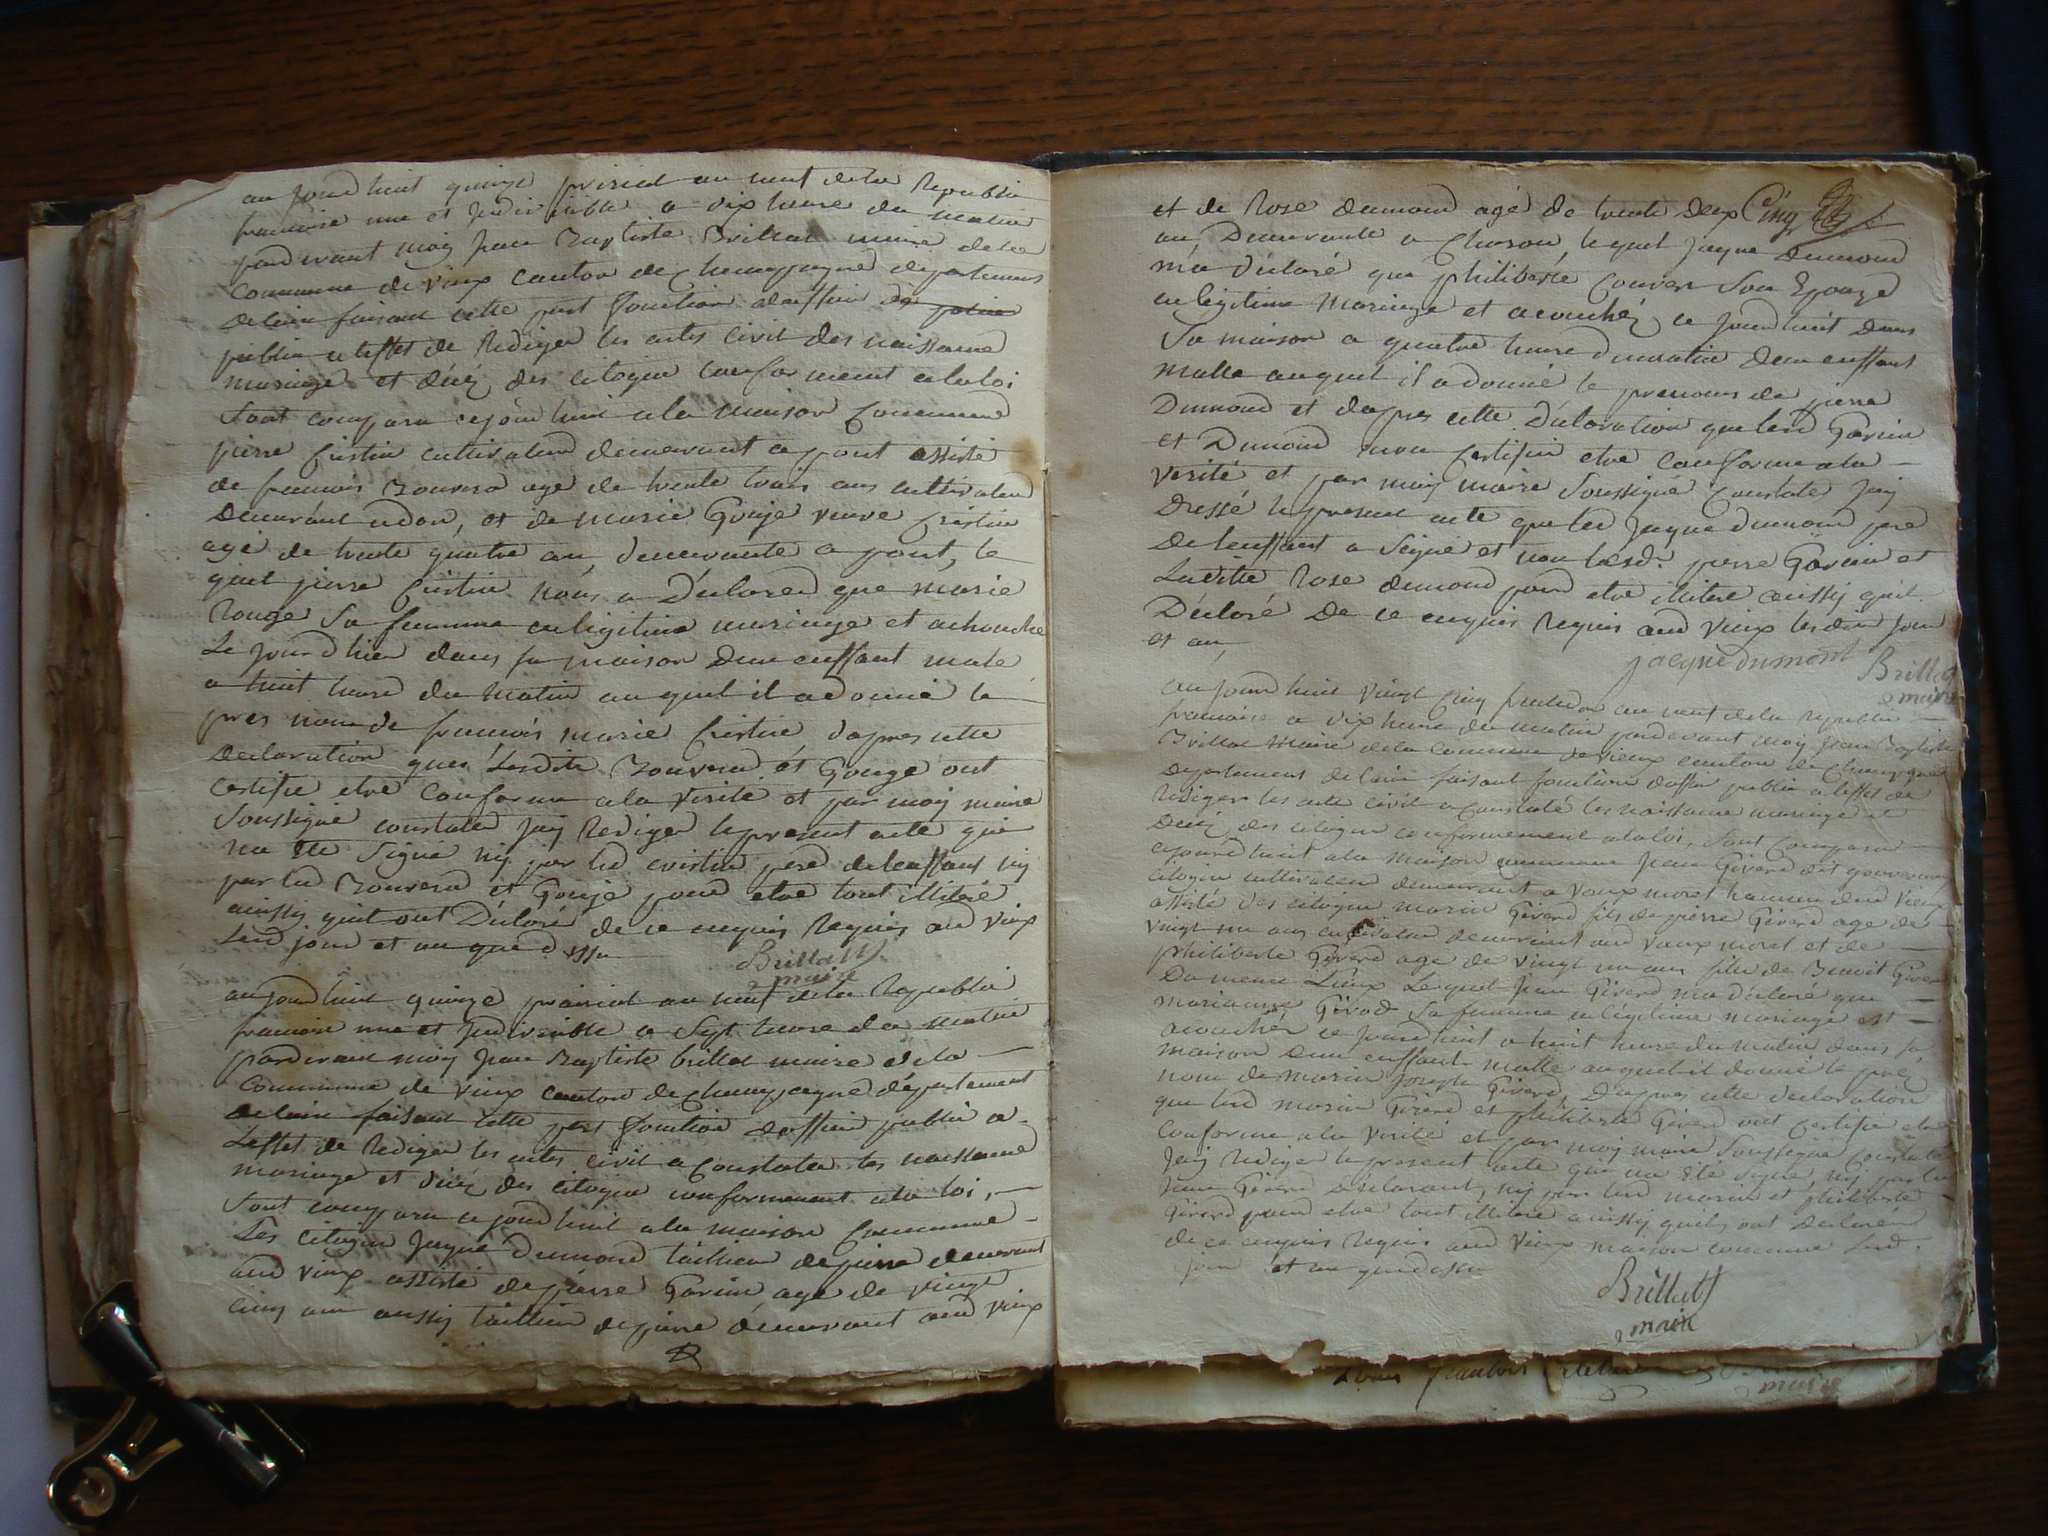 au jourdhuit quinze prerial an neuf dela Republi
francoise une et Indivisible a dix heure du matin
pardevant moy Jean Baptiste Brillat maire de la
Commune de Vieux canton de champagne departement
Delain faisant cette part fonction doffisie de police
public a leffet de Rediger les actes civil des naissance
mariage et décé des citoyen conformement a la loi
Sont comparu ce jourdhuit a la maison Commune
pierre Cristin cultivateur demeurant a pont assisté
de francois Bouvera age de trente trois ans cultivateu
Demeurant adon, et de marie Gouje veuve Cristin
agé de trente quatre an, demeurante a pont, le
quel pierre Cristin nous a Déclared que marie
Rouge Sa femme en legitime mariage et achouche
Le jourdhier dans sa maison dun enffant male
a huit heure du matin au quel il a donné le
pres nom de francois marie Cristin dapres cette
Declaration ques Lesdits Bouvera et Gouge ont
certifie etre Conforme ala Verité et par moy maire
Soussigné constater Jay Rediger le present acte qui
na été Signé ny par led cristin pere de lenffant ny
par led Bouvera et Gouje pour etre tout illitéré
ainssy quil ont Déclaré de ce enquis Requis aud Vieux
Led jour et an que dessu
Brillat
maire
au jourdhuit quinze prairial an neuf dela Republi
francoise une et Indivisible a Sept heure du matin
pardevant moy Jean Baptiste brillat maire de la
Commune de Vieux canton de champagne département
delain faisant cette part fonction doffisie public a
Leffet de Rediger les actes civil a Constater les naissance
mariage et décé des citoyen conformement ala loi,
Sont comparu ce jourdhuit a la maison Commune
Les citoyen Jaque Dumond tailleur de pierre demeurant
aud Vieux assisté de pierre Garin age de vingt
cinq ans aussy taillieur de pierre démeurant aud Vieux
et de Rose dumond agé de trente deux Cinq
an, Demeurante a Choson, le quel Jaque Dumond
m'a Déclaré que philiberte Couver Son Epouze
en legitime Mariage et acouchéz ce jourdhuit dans
Sa maison a quatre heure du matin dun enffant
malle au quel il a donné le prenoms de pierre
Dumond et dapres cette Déclaration que lesd Garin
et Dumond mon Certifié etre Conforme a la
Verité et par moy maire Soussigné Constate Jay
Dressé le present acte que led Jaque dumond pere
De lenffant a Signé et non lesd. pierre Garin et
Ladite Rose dumond pour etre illitere ainssy quil
Décloré De ce enquis Requis aud Vieux les dit Jour
et an
Jacque dumont Brillat
maire
au jourdhuit Vingt Cinq an neuf dela Republi
francoise a dix heure du matin pardevant moy Jean Baptiste
Brillat Maire de la commune de Vieux canton de Champagne
Departement de lain faisant fonction doffisi public a leffet de
Rediger les acte civil a Constaté les naissance mariage et
Décé des citoyen conformement ala loi, Sont Comparu
cejourdhuit ala maison commune Jean Girerd dit
citoyen cultivateur demeurant a Vaux moret hameau dud Vieux
assisté des citoyen marin Girerd fils de pierre Girerd age de
vingt un ans cultivateur demeurant aud Vaux moret et de
philiberte Girerd age de vingt un ans fille de Benoit Girerd
Du meme Lieux Lequel Jean Girerd ma déclaré que
marianne Girod Sa femme en légitime mariage est
acouchez ce jourdhuit a huit heure du matin dans sa
maison dun enffant malle auquel il donné le pres
nom de marin Joseph Girerd, Dapres cette declaration
que lesd marin Girerd et philiberte Girerd ont Certifie etre
Conforme ala Verité et par moy maire Soussigné Constate
Jay Rediger le present acte que na été Signé, ny par led
Jean Girerd Déclarant, ny par lesd marin et philiberte
Girerd pour etre tout illitere ainssy quils ont Declarér
de ce enquis Requis aud Vieux maison commune Lesd.
jour et an que dessu
Brillat
maire
maire